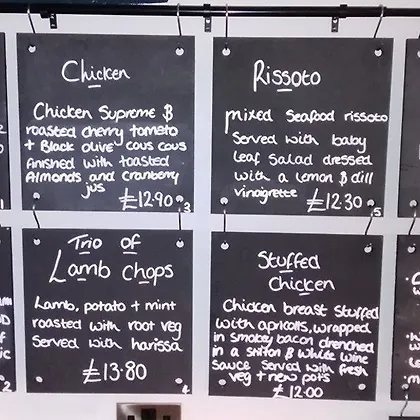 Chicken
Chicken Supreme &
roasted cherry tomato
+ Black olive cous cous
finished with toasted
Almonds and cranberry
jus
£12.90
3
Rissoto
mixed Seafood rissoto
Served with baby
leaf salad dressed
with a lemon & dill
vinaigrette £12.30
5
Trio of
Lamb chops
Lamb, potato + mint
roasted with root veg
Served with harissa
£13.80
4
Stuffed
chicken
Chicken breast stuffed
with apricots, wrapped
in smokey bacon drenched
in a & white wine
sauce served with fresh
veg + new pots
£12.00
6
1
2